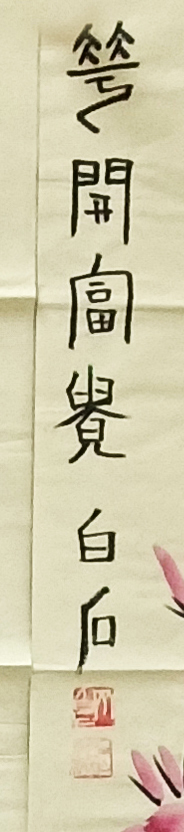 華開富貴 白石